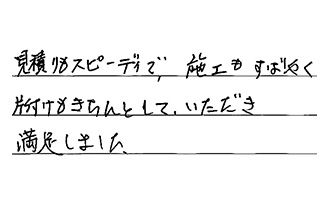 見積りもスピーディで、施工もすばやく
片付けもきちんとして、いただき
満足しました。